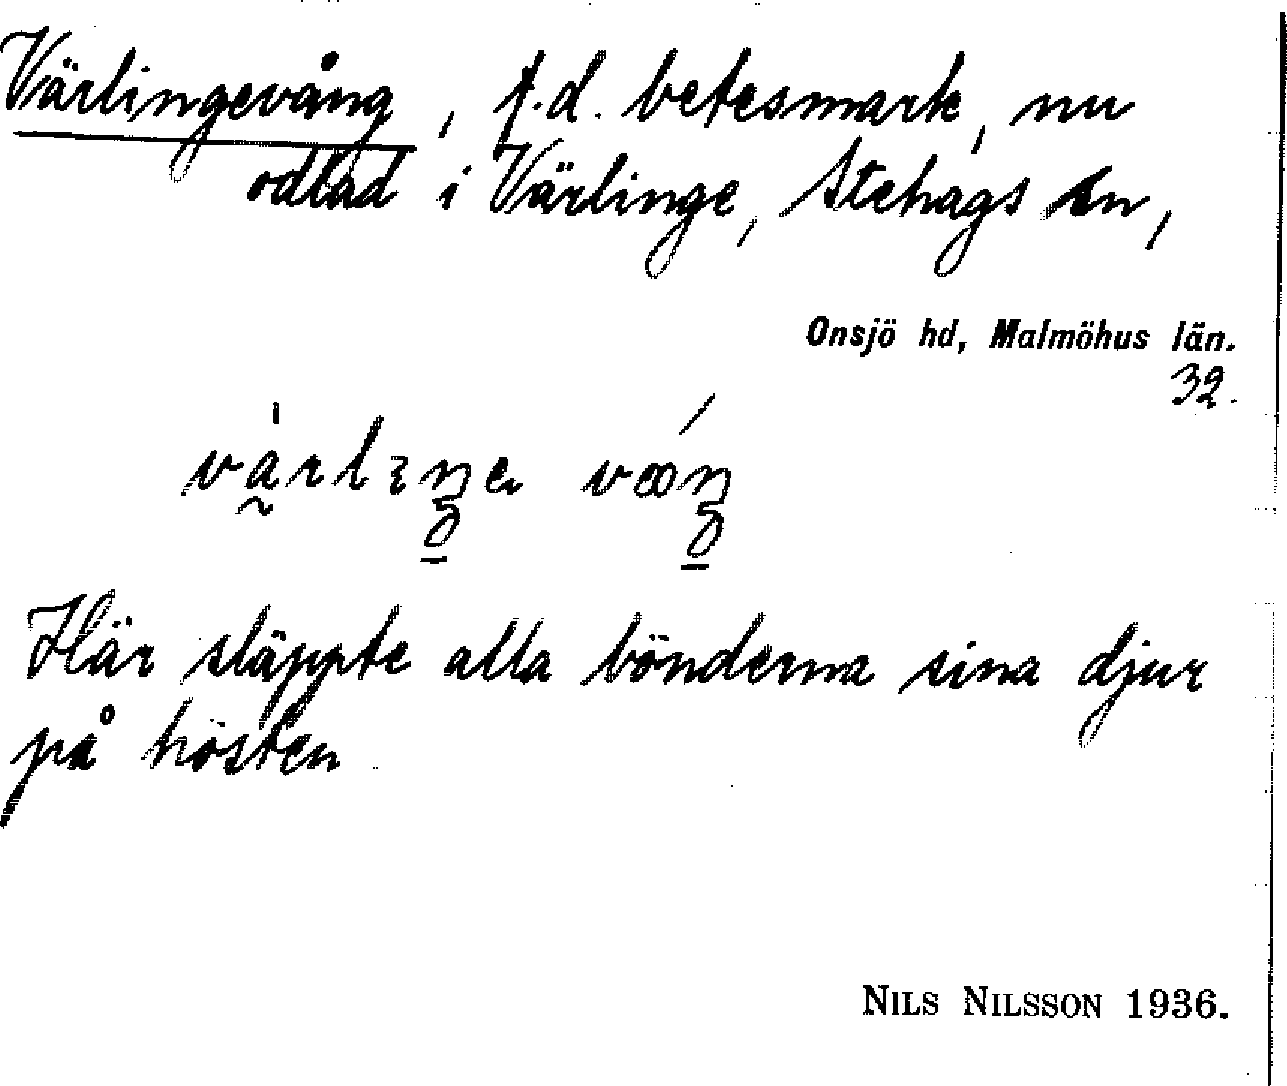 Värlingevång, f.d. betesmark, nu
odlad i Värlinge, Stehags sn,
Onsjö hd, Malmöhus län.
32.
Här släppte alla bönderna sina djur
på hösten
NILS NILSSON 1936.